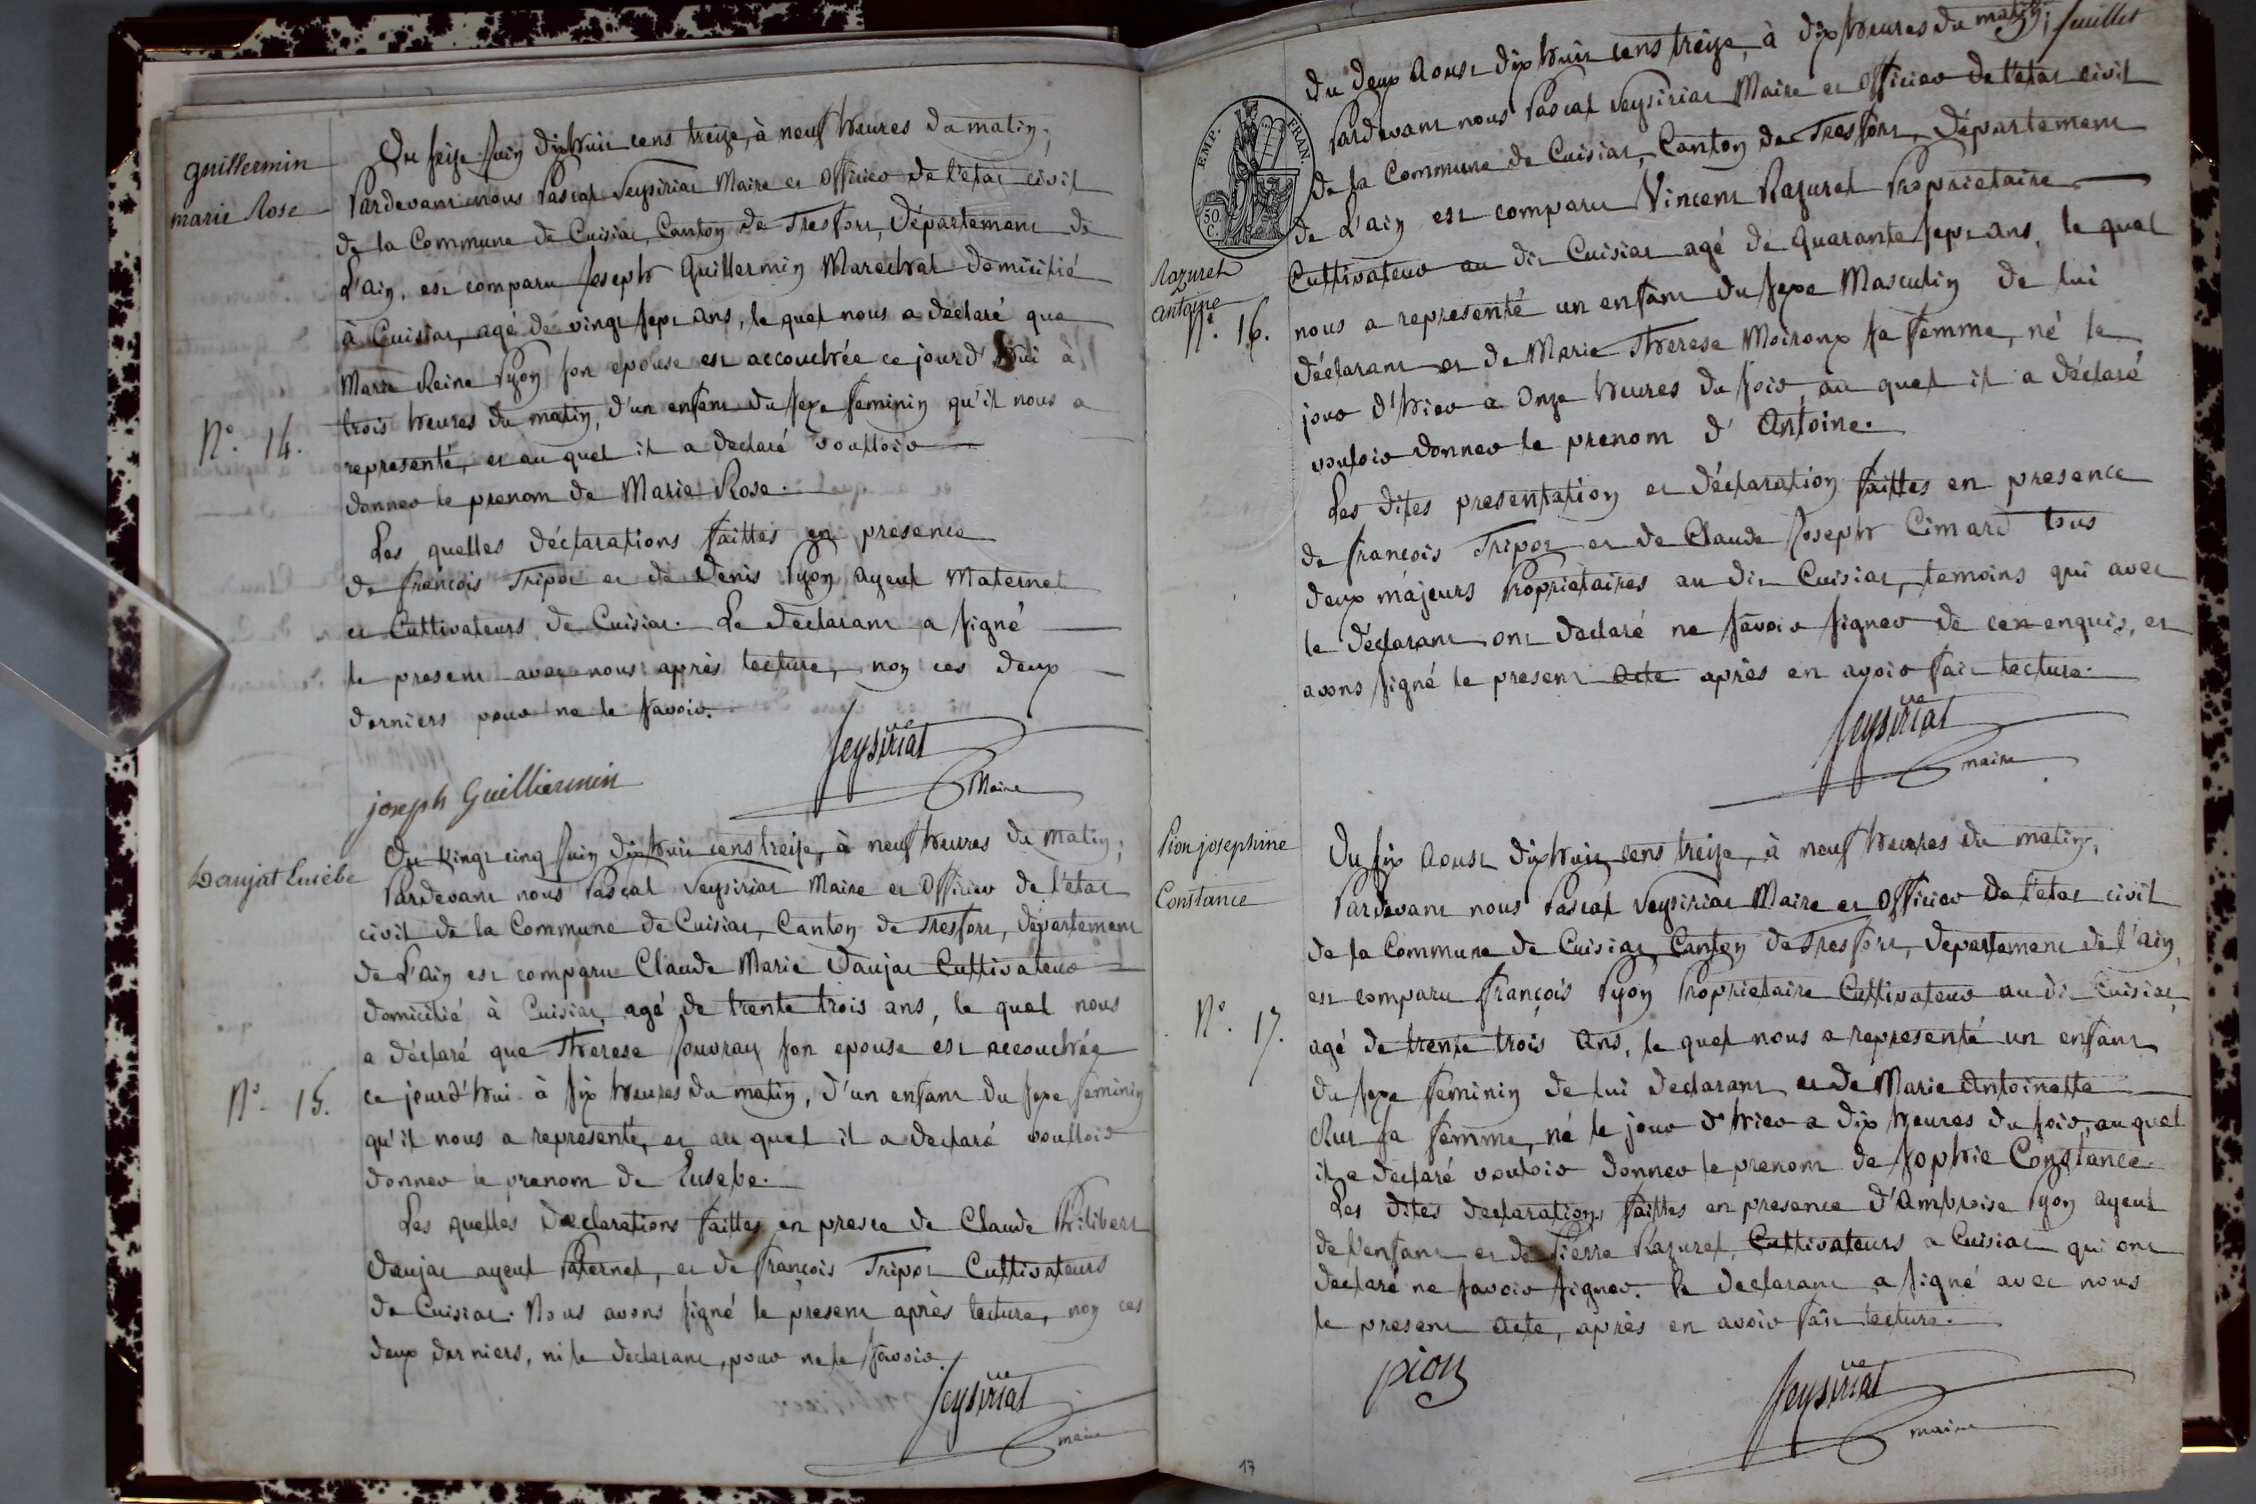 guillermin
marie Rose
N.º 14.
Du seize Juin dixhuit cens treize, à neuf heures du matin;
Pardevant nous Pascal Veysiriat Maire et Officier de l'etat civil
de la Commune de Cuisiat, Canton de Treffort, Département de
L'ain, est comparu Joseph Guillermin Marechal domicilié
à Cuisiat, agé de vingt sept ans, le quel nous a déclaré que
Marie Reine Pyon son epouse est accouchée ce jourd'hui à
trois heures du matin, d'un enfant du sexe feminin qu'il nous a
representé, et au quel il a declaré voulloir
donner le prenom de Marie Rose.
Les quelles déclarations faittes en presence
de françois Tripoz et de Denis Pyon ayeul Maternel
et Cultivateurs de Cuisiat. Le declarant a signé
le present avec nous après lecture, non ces deux
derniers pour ne le savoir.
Veysiriat
Maire
joseph Guilliermin
Daujat Eusèbe
N.º 15.
Du Vingt cinq Juin dixhuit cens treize, à neuf heures du matin;
Pardevant nous Pascal Veysiriat Maire et Officier de l'etat
civil de la Commune de Cuisiat, Canton de Treffort, département
de L'ain est comparu Claude Marie Daujat Cultivateur
domicilié à Cuisiat, agé de trente trois ans, le quel nous
a déclaré que Therese Jouvray son epouse est accouchée
ce jourd'hui à six heures du matin, d'un enfant du sexe feminin
qu'il nous a representé, et au quel il a declaré voulloir
donner le prenom de Eusebe.
Les quelles declarations faittes en presce de Claude Philibert
Daujat ayeul Paternel, et de françois Tripoz Cultivateurs
de Cuisiat. Nous avons signé le present après lecture, non ces
deux derniers, ni le declarant, pour ne le savoir.
Veysiriat
maire
EMP. FRAN.
50 C.
Razurel
antoine
N.º 16.
Du deux Aoust dixhuit cens treize, à dix heures du matin; Juillet
Pardevant nous Pascal Veysiriat Maire et Officier de l'etat civil
de la Commune de Cuisiat, Canton de Treffort, Département
de L'ain est comparu Vincent Razurel Proprietaire
Cultivateur au dit Cuisiat agé de quarante sept ans, le quel
nous a representé un enfant du sexe Masculin de lui
déclarant et de Marie Therese Moiroux sa femme, né le
jour d'hier a Onze heures du soir, au quel il a déclaré
vouloir donner le prenom d'Antoine.
Les dites presentation et déclaration faittes en presence
de françois Tripoz et de Claude Joseph Cimard tous
deux majeurs Propriétaires au dit Cuisiat, temoins qui avec
le déclarant ont declaré ne savoir signer de ce enquis, et
avons signé le present acte après en avoir fait lecture.
Veysiriat
maire
Pion josephine
Constance
N.º 17.
Du six Aoust dixhuit cens treize, à neuf heures du matin,
Pardevant nous Pascal Veysiriat Maire et Officier de l'etat civil
de la Commune de Cuisiat, Canton de Treffort, departement de l'ain,
est comparu françois Pyon Proprietaire Cultivateur au dit Cuisiat,
agé de trente trois ans, le quel nous a representé un enfant
du sexe feminin de lui declarant et de Marie Antoinette
sa femme, né le jour d'hier a dix heures du soir, au quel
il a declaré vouloir donner le prenom de Sophie Constance.
Les dites declarations faittes en presence d'Ambroise Pyon ayeul
de l'enfant et de Pierre Razurel, Cultivateurs a Cuisiat qui ont
declaré ne savoir signer. Le declarant a signé avec nous
le present acte, après en avoir fait lecture.
pion
Veysiriat
maire
17